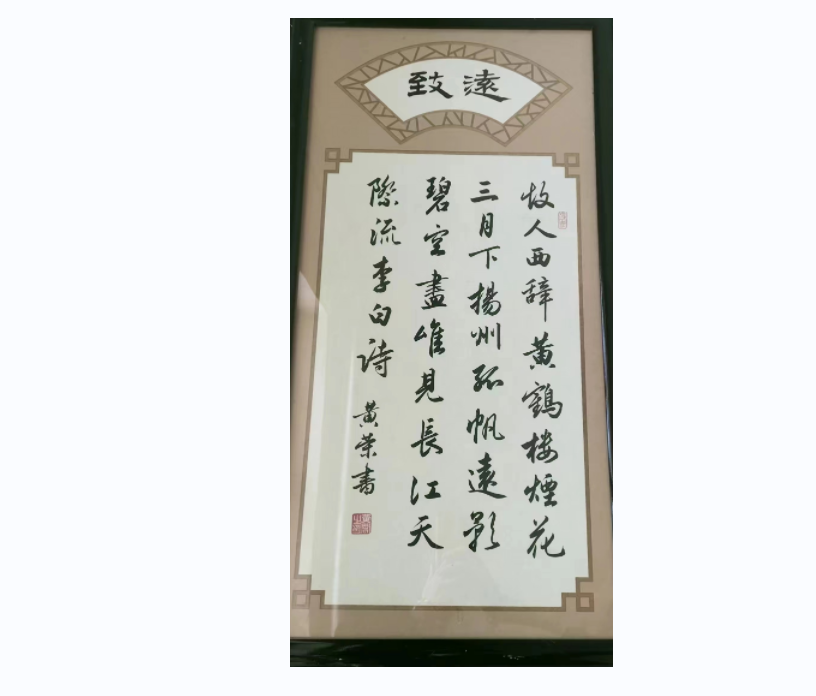 致遠
故人西辞黄鶴楼煙花
三月下揚州孤帆遠影
碧空盡唯見長江天
際流李白詩
黄荣書